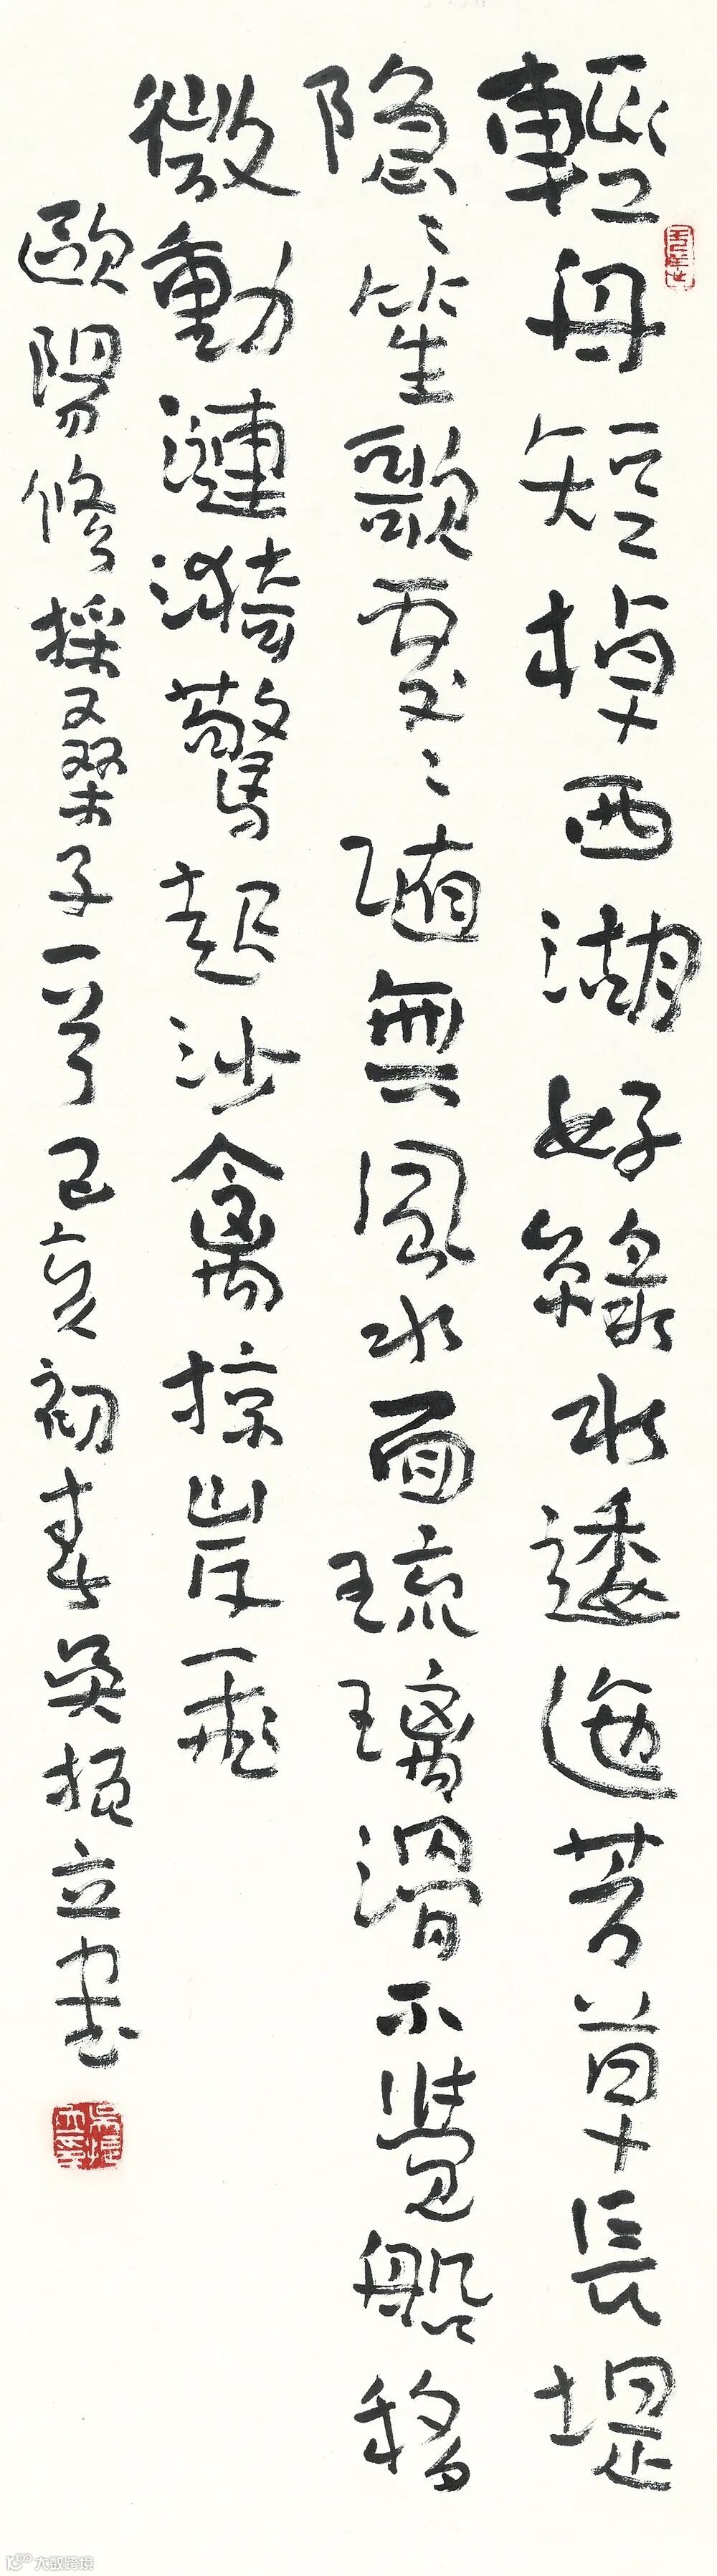 輕舟短棹西湖好綠水逶迤芳草長堤
隐〻笙歌處〻隨無風水面琉璃滑不覺船移
微動漣漪驚起沙禽掠岸飛
歐陽修採桑子一首己亥初春吳振立書
大数跨境